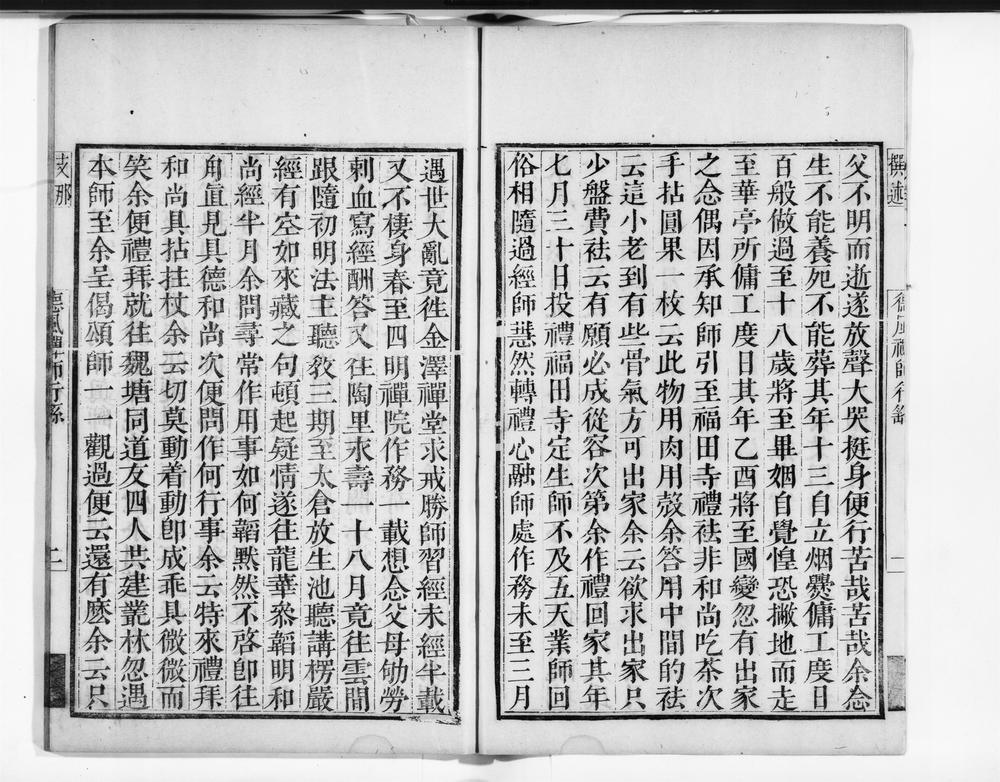 撰述
德風禪師行繇
一
父不明而逝遂放聲大哭挺身便行苦哉苦哉余念
生不能養死不能葬其年十三自立烟爨傭工度日
百般做過至十八歲將至畢姻自覺惶恐撇地而走
至華亭所傭工度日其年乙酉將至國變忽有出家
之念偶因承知師引至福田寺禮祛非和尚吃茶次
手拈圓果一枚云此物用肉用殼余答用中間的祛
云這小老到有些骨氣方可出家余云欲求出家只
少盤費祛云有願必成從容次第余作禮回家其年
七月三十日投禮福田寺定生師不及五天業師回
俗相隨過經師慧然轉禮心融師處作務未至三月
遇世大亂竟徃金澤禪堂求戒勝師習經未經半載
又不棲身春至四明禪院作務一載想念父母劬勞
刺血寫經酬答又往陶里永壽一十八月竟往雲間
跟隨初明法主聽教三期至太倉放生池聽講楞嚴
經有空如來藏之句頓起疑情遂往龍華叅韜明和
尚經半月余問尋常作用事如何韜默然不啓卽往
角直見具德和尚次便問作何行事余云特來禮拜
和尚具拈拄杖余云切莫動着動卽成乖具微微而
笑余便禮拜就往魏塘同道友四人共建叢林忽遇
本師至余呈偈頌師一一觀過便云還有麽余云只
支那
德風禪師行繇
二